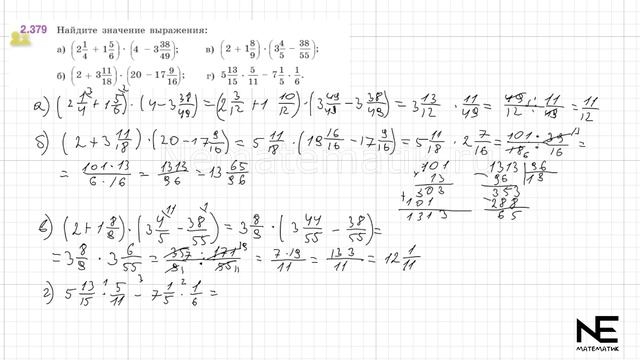 2.379 Найдите значение выражения:
а) (2 1/4 + 1 5/6) · (4 − 3 38/49); в) (2 + 1 8/9) · (3 4/5 − 38/55);
б) (2 + 3 11/18) · (20 − 17 9/16); г) 5 13/15 · 5/11 − 7 1/5 · 1/6.
а) (2 1/4 + 1 5/6) · (4 − 3 38/49) = (2 3/12 + 1 10/12) · (3 49/49 − 3 38/49) = 3 13/12 · 11/49 = 49/12 · 11/49 = 11/12
б) (2 + 3 11/18) · (20 − 17 9/16) = 5 11/18 · (19 16/16 − 17 9/16) = 5 11/18 · 2 7/16 = 101 · 39/18 · 16 =
= 101 · 13/6 · 16 = 1313/96 = 13 65/96
101
× 13
303
+ 101
1313
1313 | 96
− 96 | 13
353
− 288
65
в) (2 + 1 8/9) · (3 4/5 − 38/55) = 3 8/9 · (3 44/55 − 38/55) =
= 3 8/9 · 3 6/55 = 35 · 171/9 · 55 = 7 · 19/11 = 133/11 = 12 1/11
г) 5 13/15 · 5/11 − 7 1/5 · 1/6 =
NE
МАТЕМАТИК